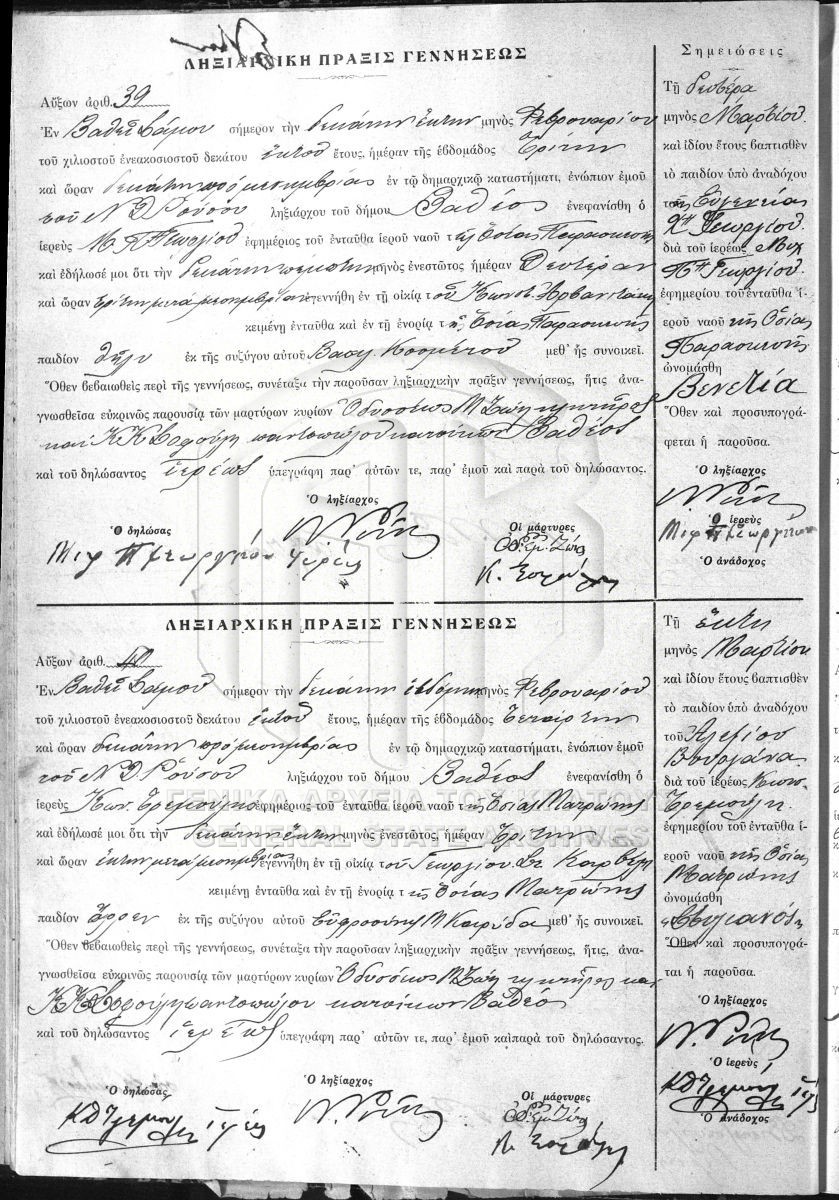 ΛΗΞΙΑΡΧΙΚΗ ΠΡΑΞΙΣ ΓΕΝΝΗΣΕΩΣ
Αὔξων ἀριθ. 39
Ἐν Βαθεῖ Σάμου σήμερον τὴν δεκάτην ἕκτην μηνὸς Φεβρουαρίου
τοῦ χιλιοστοῦ ἐνεακοσιοστοῦ δεκάτου ἕκτου ἔτους, ἡμέραν τῆς ἑβδομάδος Τρίτην
καὶ ὥραν δεκάτην πρὸ μεσημβρίας ἐν τῷ δημαρχικῷ καταστήματι, ἐνώπιον ἐμοῦ
τοῦ Ν Δ Ρούσου ληξιάρχου τοῦ δήμου Βαθέος ἐνεφανίσθη ὁ
ἱερεὺς Μ Π Γεωργίου ἐφημέριος τοῦ ἐνταῦθα ἱεροῦ ναοῦ τῆς Ὁσίας Παρασκευῆς
καὶ ἐδήλωσέ μοι ὅτι τὴν δεκάτην πέμπτην μηνὸς ἐνεστῶτος ἡμέραν Δευτέραν
καὶ ὥραν τρίτην μετὰ μεσημβρίαν ἐγεννήθη ἐν τῇ οἰκίᾳ τοῦ Κωνστ. Ἀρβανιτάκη
κειμένῃ ἐνταῦθα καὶ ἐν τῇ ἐνορίᾳ τῆς Ὁσίας Παρασκευῆς
παιδίον θῆλυ ἐκ τῆς συζύγου αὐτοῦ Βασιλ. μεθ' ἧς συνοικεῖ.
Ὅθεν βεβαιωθεὶς περὶ τῆς γεννήσεως, συνέταξα τὴν παροῦσαν ληξιαρχικὴν πρᾶξιν γεννήσεως, ἥτις ἀνα-
γνωσθεῖσα εὐκρινῶς παρουσίᾳ τῶν μαρτύρων κυρίων Ὀδυσσέως Μ Ζώη κλητῆρος
καὶ Κ Κ παντοπώλου κατοίκων Βαθέος
καὶ τοῦ δηλώσαντος ἱερέως ὑπεγράφη παρ' αὐτῶν τε, παρ' ἐμοῦ καὶ παρὰ τοῦ δηλώσαντος.
Ὁ δηλώσας
Ὁ ληξίαρχος
Οἱ μάρτυρες
Μιχ Π Γεωργίου ἱερεὺς
Σημειώσεις
Τῇ δευτέρᾳ
μηνὸς Μαρτίου
καὶ ἰδίου ἔτους βαπτισθὲν
τὸ παιδίον ὑπὸ ἀναδόχου
τῆς Εὐγενείας
Χ" Γεωργίου
διὰ τοῦ ἱερέως Μιχ
Π" Γεωργίου
ἐφημερίου τοῦ ἐνταῦθα ἱ-
εροῦ ναοῦ τῆς Ὁσίας
Παρασκευῆς
ὠνομάσθη
Βενετία
Ὅθεν καὶ προσυπογρά-
φεται ἡ παροῦσα.
Ὁ ληξίαρχος
Ὁ ἱερεὺς
Μιχ Π Γεωργίου
Ὁ ἀνάδοχος
ΛΗΞΙΑΡΧΙΚΗ ΠΡΑΞΙΣ ΓΕΝΝΗΣΕΩΣ
Αὔξων ἀριθ. 40
Ἐν Βαθεῖ Σάμου σήμερον τὴν δεκάτην ἑβδόμην μηνὸς Φεβρουαρίου
τοῦ χιλιοστοῦ ἐνεακοσιοστοῦ δεκάτου ἕκτου ἔτους, ἡμέραν τῆς ἑβδομάδος Τετάρτην
καὶ ὥραν δεκάτην πρὸ μεσημβρίας ἐν τῷ δημαρχικῷ καταστήματι, ἐνώπιον ἐμοῦ
τοῦ Ν Δ Ρούσου ληξιάρχου τοῦ δήμου Βαθέος ἐνεφανίσθη ὁ
ἱερεὺς Κων. Τρεμούλης ἐφημέριος τοῦ ἐνταῦθα ἱεροῦ ναοῦ τῆς Ὁσίας Ματρώνης
ΓΕΝΙΚΑ ΑΡΧΕΙΑ ΤΟΥ ΚΡΑΤΟΥΣ
GENERAL STATE ARCHIVES
καὶ ἐδήλωσέ μοι ὅτι τὴν δεκάτην ἕκτην μηνὸς ἐνεστῶτος, ἡμέραν Τρίτην
καὶ ὥραν ἕκτην μετὰ μεσημβρίας ἐγεννήθη ἐν τῇ οἰκίᾳ τοῦ Γεωργίου Στ. Καρβέλη
κειμένῃ ἐνταῦθα καὶ ἐν τῇ ἐνορίᾳ τῆς Ὁσίας Ματρώνης
παιδίον ἄρρεν ἐκ τῆς συζύγου αὐτοῦ Εὐφροσύνης Μ μεθ' ἧς συνοικεῖ.
Ὅθεν βεβαιωθεὶς περὶ τῆς γεννήσεως, συνέταξα τὴν παροῦσαν ληξιαρχικὴν πρᾶξιν γεννήσεως, ἥτις, ἀνα-
γνωσθεῖσα εὐκρινῶς παρουσίᾳ τῶν μαρτύρων κυρίων Ὀδυσσέως Μ Ζώη κλητῆρος καὶ
Κ Κ παντοπώλου κατοίκων Βαθέος
καὶ τοῦ δηλώσαντος ἱερέως ὑπεγράφη παρ' αὐτῶν τε, παρ' ἐμοῦ καὶ παρὰ τοῦ δηλώσαντος.
Ὁ δηλώσας
Ὁ ληξίαρχος
Οἱ μάρτυρες
Τῇ ἕκτῃ
μηνὸς Μαρτίου
καὶ ἰδίου ἔτους βαπτισθὲν
τὸ παιδίον ὑπὸ ἀναδόχου
τοῦ Ἀλεξίου
διὰ τοῦ ἱερέως Κωνσ.
Τρεμούλη
ἐφημερίου τοῦ ἐνταῦθα ἱ-
εροῦ ναοῦ τῆς Ὁσίας
Ματρώνης
ὠνομάσθη
«Στυλιανός»
Ὅθεν καὶ προσυπογρά-
φεται ἡ παροῦσα.
Ὁ ληξίαρχος
Ὁ ἱερεὺς
Ὁ ἀνάδοχος